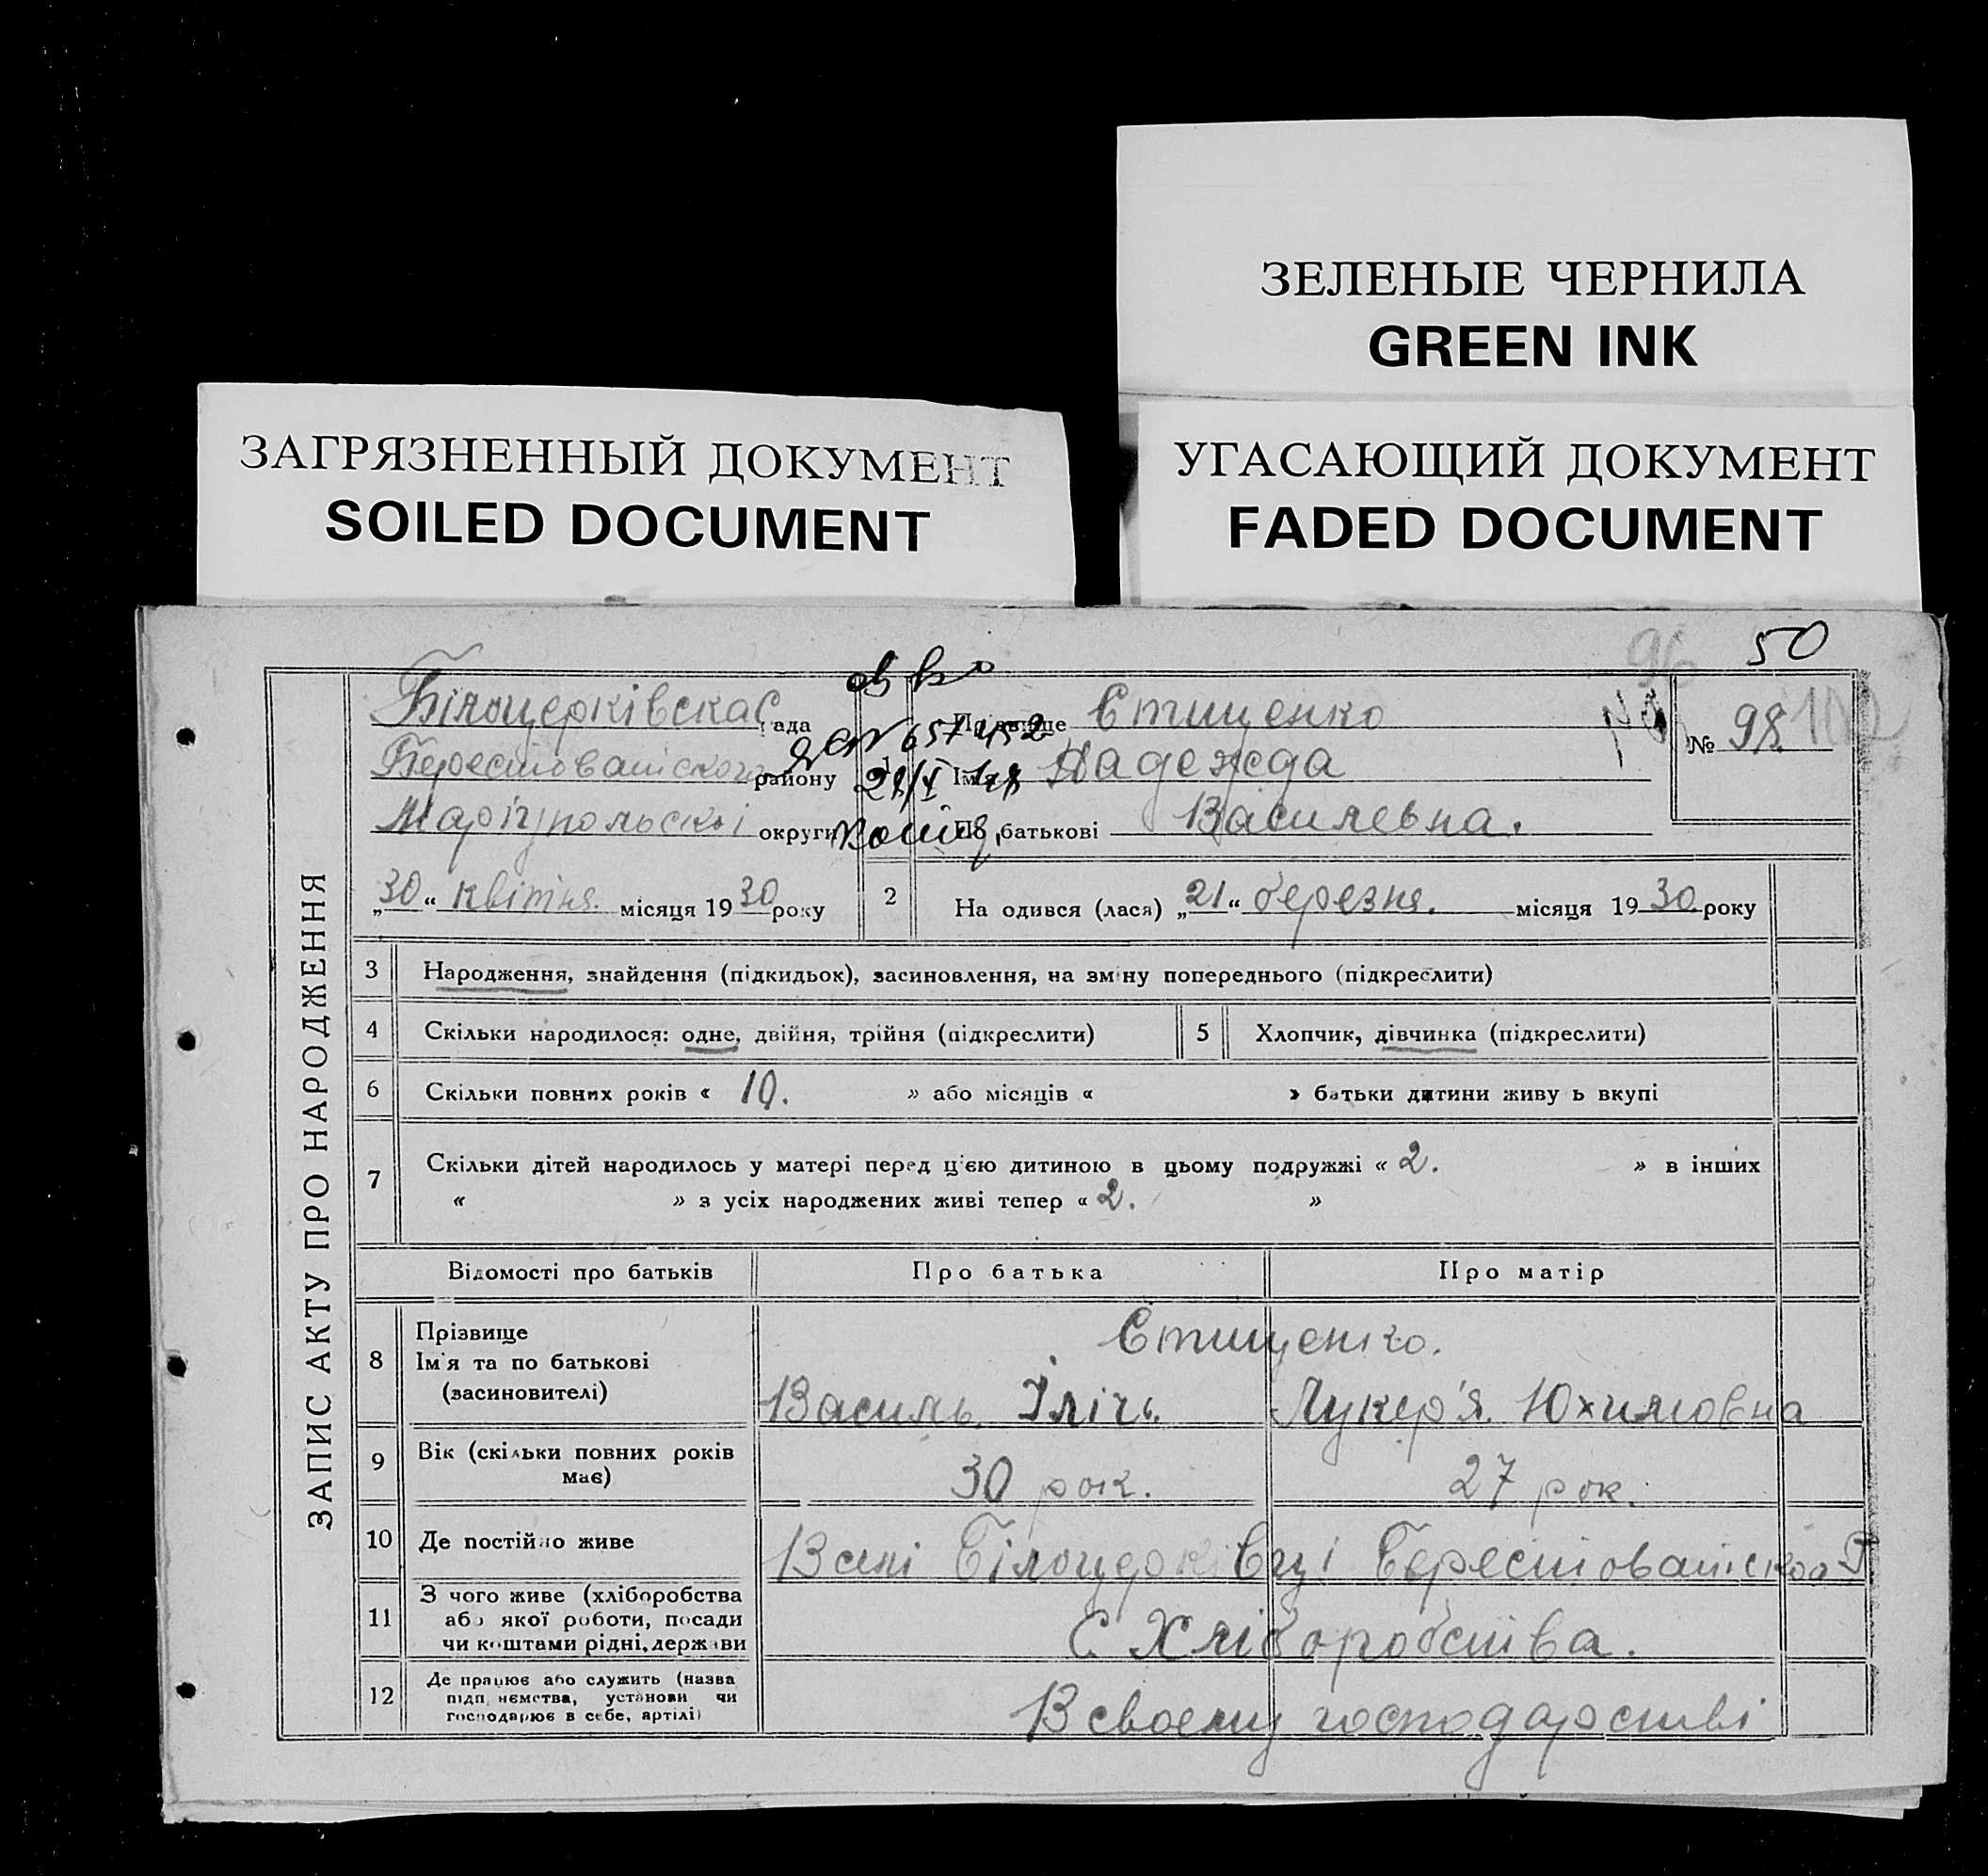 ЗЕЛЕНЫЕ ЧЕРНИЛА
GREEN INK
ЗАГРЯЗНЕННЫЙ ДОКУМЕНТ
SOILED DOCUMENT
УГАСАЮЩИЙ ДОКУМЕНТ
FADED DOCUMENT
96 50
ЗАПИС АКТУ ПРО НАРОДЖЕННЯ
Білоцерківска С рада
Берестоватского району
Маріупольскі округи
„30“ квітня. місяця 1930 року
1 Прізвище Єтищенко
Ім'я Надежда
По батькові Василевна.
№ 98 102
2 На одився (лася) „21“ березня. місяця 1930 року
3 Народження, знайдення (підкидьок), засиновлення, на зміну попереднього (підкреслити)
4 Скільки народилося: одне, двійня, трійня (підкреслити) 5 Хлопчик, дівчинка (підкреслити)
6 Скільки повних років « 10. » або місяців « » батьки дитини живу ь вкупі
7 Скільки дітей народилось у матері перед ц'єю дитиною в цьому подружжі « 2. » в інших
« » з усіх народжених живі тепер « 2. »
Відомості про батьків Про батька Про матір
8 Прізвище
Ім'я та по батькові
(засиновителі)
Єтищенко.
Василь. Іліч. Лукер'я. Юхимовна
9 Вік (скільки повних років
має)
30 рок. 27 рок.
10 Де постійно живе
В селі Білоцерківці Берестоватскоо Р.
11 З чого живе (хліборобства
або якої роботи, посади
чи коштами рідні, держави
С Хліборобства.
12 Де працює або служить (назва
підп иємства, установи чи
господарює в себе, артілі)
В своему господарстві